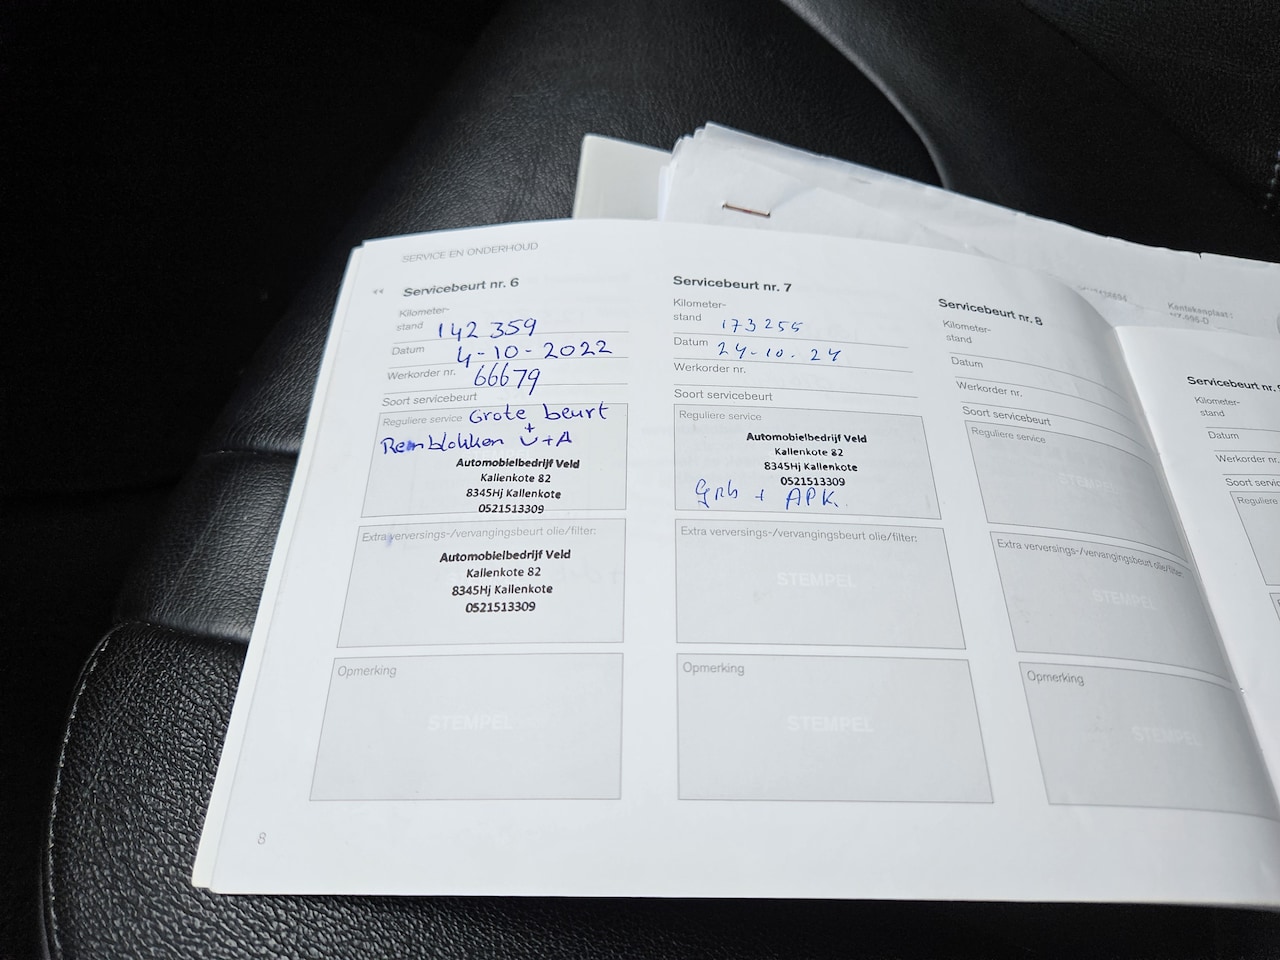 SERVICE EN ONDERHOUD
Servicebeurt nr. 6
Kilometer-
stand 142 359
Datum 4-10-2022
Werkorder nr. 66679
Soort servicebeurt
Reguliere service Grote beurt
+
Remblokken V+A
Automobielbedrijf Veld
Kallenkote 82
8345Hj Kallenkote
0521513309
Extra verversings-/vervangingsbeurt olie/filter:
Automobielbedrijf Veld
Kallenkote 82
8345Hj Kallenkote
0521513309
Opmerking
STEMPEL
8
Servicebeurt nr. 7
Kilometer-
stand 173255
Datum 24-10.24
Werkorder nr.
Soort servicebeurt
Reguliere service
Automobielbedrijf Veld
Kallenkote 82
8345Hj Kallenkote
0521513309
+ APK.
Extra verversings-/vervangingsbeurt olie/filter:
STEMPEL
Opmerking
STEMPEL
Servicebeurt nr. 8
Kilometer-
stand
Datum
Werkorder nr.
Soort servicebeurt
Reguliere service
STEMPEL
Extra verversings-/vervangingsbeurt olie/filter:
STEMPEL
Opmerking
STEMPEL
Kentekenplaat :
Servicebeurt nr.
Kilometer-
stand
Datum
Werkorder nr.
Soort
Reguliere